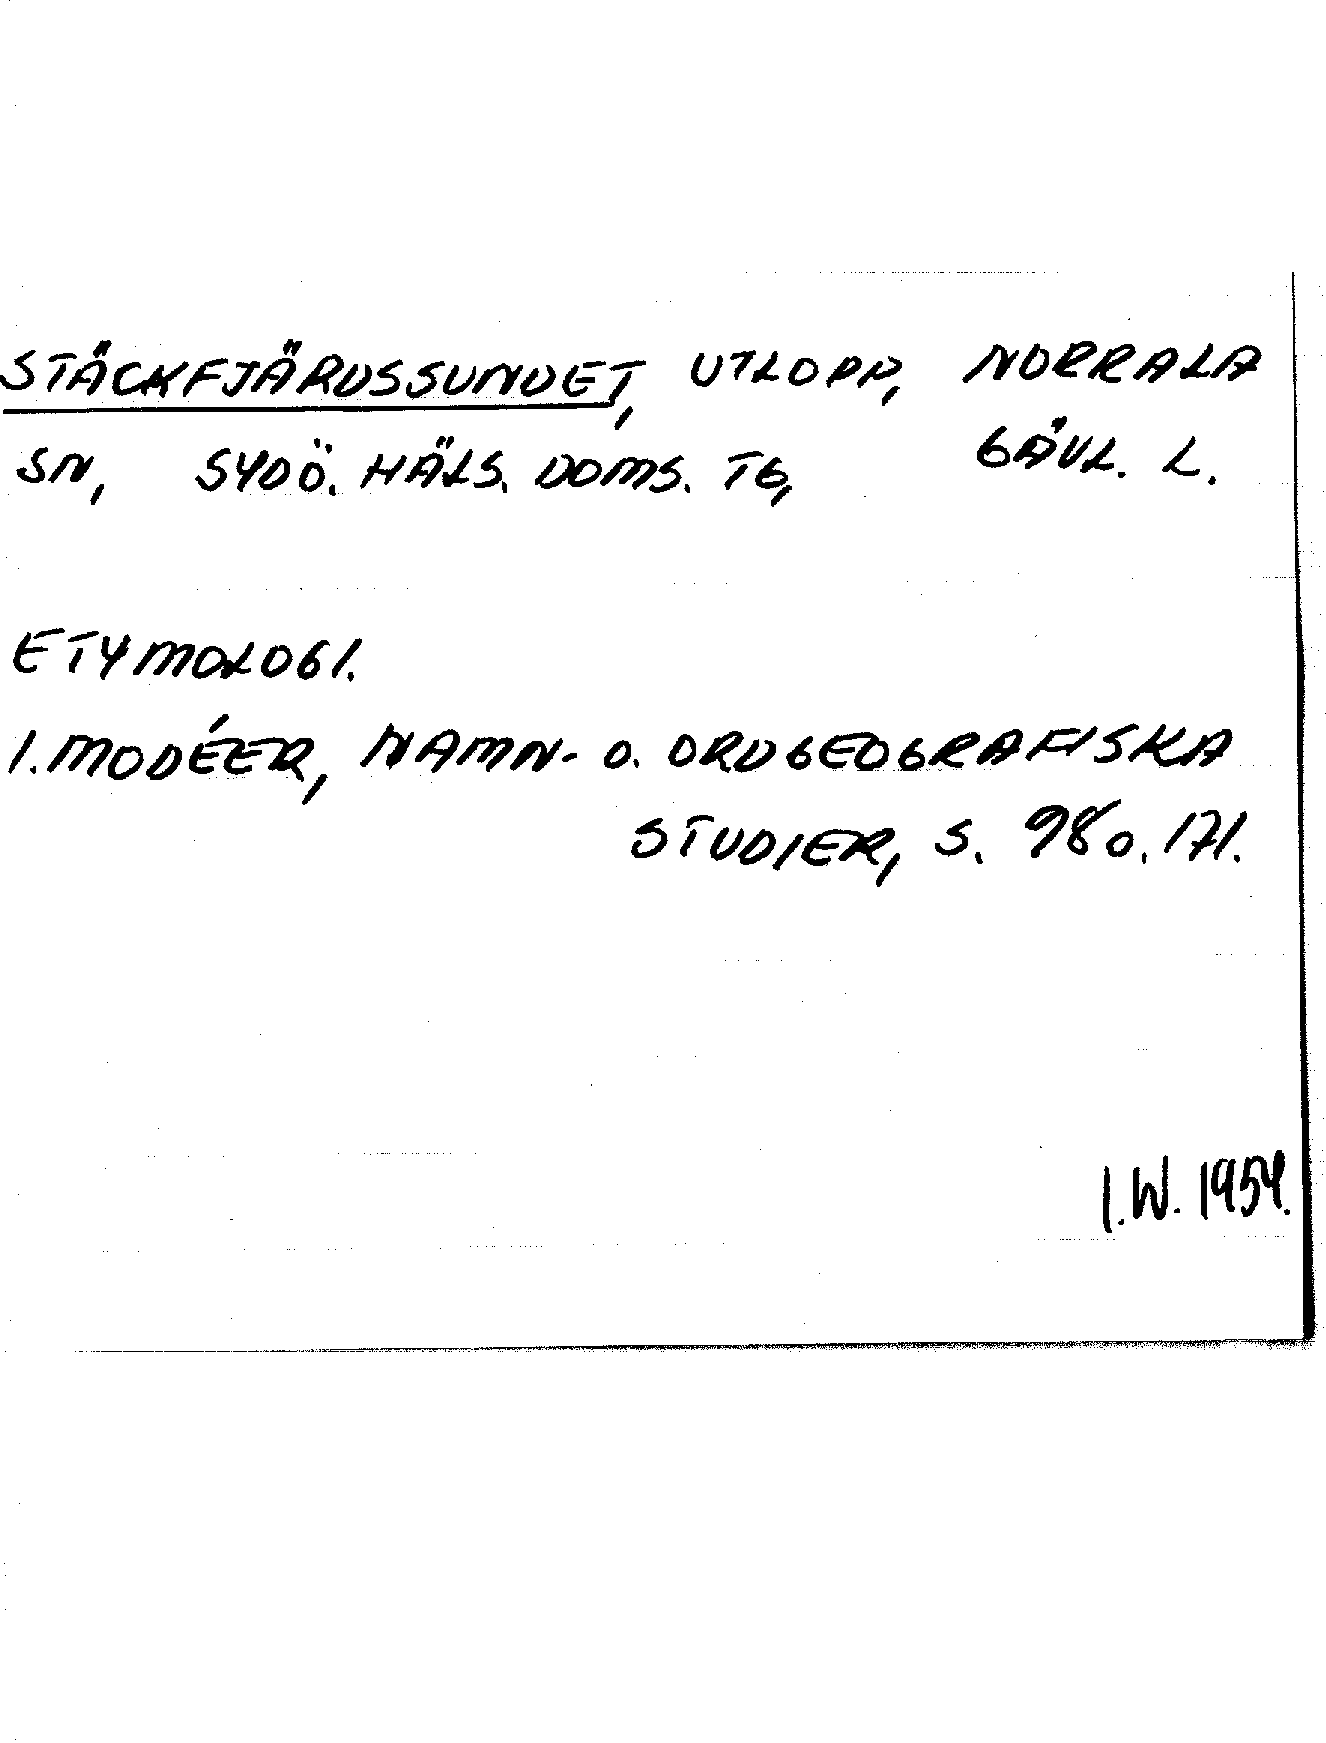 STÄCKFJÄRDSSUNDET, UTLOPP, NORRALA
SN, SYDÖ. HÄLS. DOMS. TG, GÄVL. L.
ETYMOLOGI.
I. MODÉER, NAMN- O. ORDGEOGRAFISKA
STUDIER, S. 98 O. 171.
I.W. 1954.